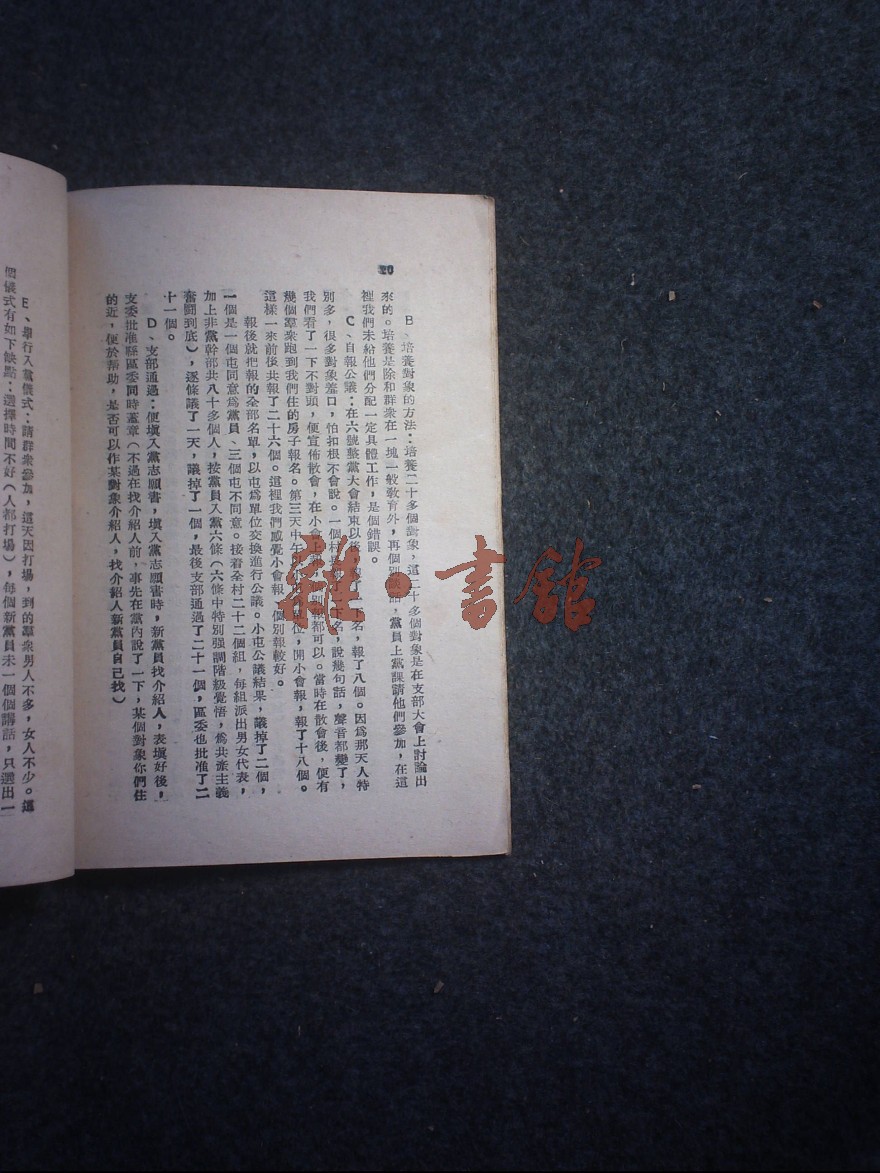 20
B、培養對象的方法：培養二十多個對象，這二十多個對象是在支部大會上討論出
來的。培養是除和群衆在一塊一般教育外，再個別談話，黨員上黨課請他們參加，在這
裡我們未給他們分配一定具體工作，是個錯誤。
C、自報公議：在六號整黨大會結束以後 報了 名，報了八個。因爲那天人特
別多，很多對象羞口，怕扣根不會說。一個村 名，說幾句話，聲音都變了，
我們看了一下不對頭，便宣佈散會，在小會上 別報都可以。當時在散會後，便有
幾個羣衆跑到我們住的房子報名。第三天中午 位，開小會報，報了十八個。
這樣一來前後共報了二十六個。這裡我們感覺小會報 個別報較好。
報後就把報的全部名單，以屯爲單位交換進行公議。小屯公議結果，議掉了二個，
一個是一個屯同意爲黨員、三個屯不同意。接着全村二十二個組，每組派出男女代表，
加上非黨幹部共八十多個人，按黨員入黨六條（六條中特別强調階級覺悟，爲共產主義
奮鬭到底），逐條議了一天，議掉了一個，最後支部通過了二十一個，區委也批准了二
十一個。
D、支部通過：便填入黨志願書，填入黨志願書時，新黨員找介紹人，表填好後，
支委批准縣區委同時蓋章（不過在找介紹人前，事先在黨內說了一下，某個對象你們住
的近，便於幫助，是否可以作某對象介紹人，找介紹人新黨員自己找）
E、舉行入黨儀式：請群衆參加，這天因打場，到的羣衆男人不多，女人不少。這
個儀式有如下缺點：選擇時間不好（人都打場），每個新黨員未一個個講話，只選出一
雜·書館